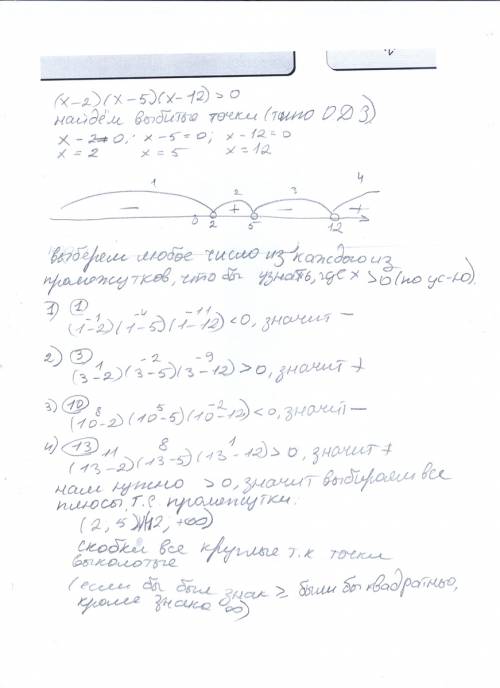 (x-2)(x-5)(x-12)>0
найдём выбитые точки (типо ОДЗ)
x-2=0; x-5=0; x-12=0
x=2 x=5 x=12
1 2 3 4
− + − +
0 2 5 12
выберем любое число из каждого из
промежутков, что бы узнать, где x >0 (по ус-ю).
1) 1
-1 -4 -11
(1-2)(1-5)(1-12)<0, значит −
2) 3
1 -2 -9
(3-2)(3-5)(3-12)>0, значит +
3) 10
8 5 -2
(10-2)(10-5)(10-12)<0, значит −
4) 13
11 8 1
(13-2)(13-5)(13-12)>0, значит +
нам нужно >0, значит выбираем все
плюсы, т.е. промежутки:
(2, 5) (12, +∞)
скобки все круглые т.к точки
выколотые
(если бы был знак ≥ были бы квадратные,
кроме знака ∞)